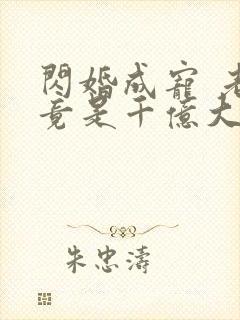 閃婚成寵 老
竟是千億大
朱忠濤